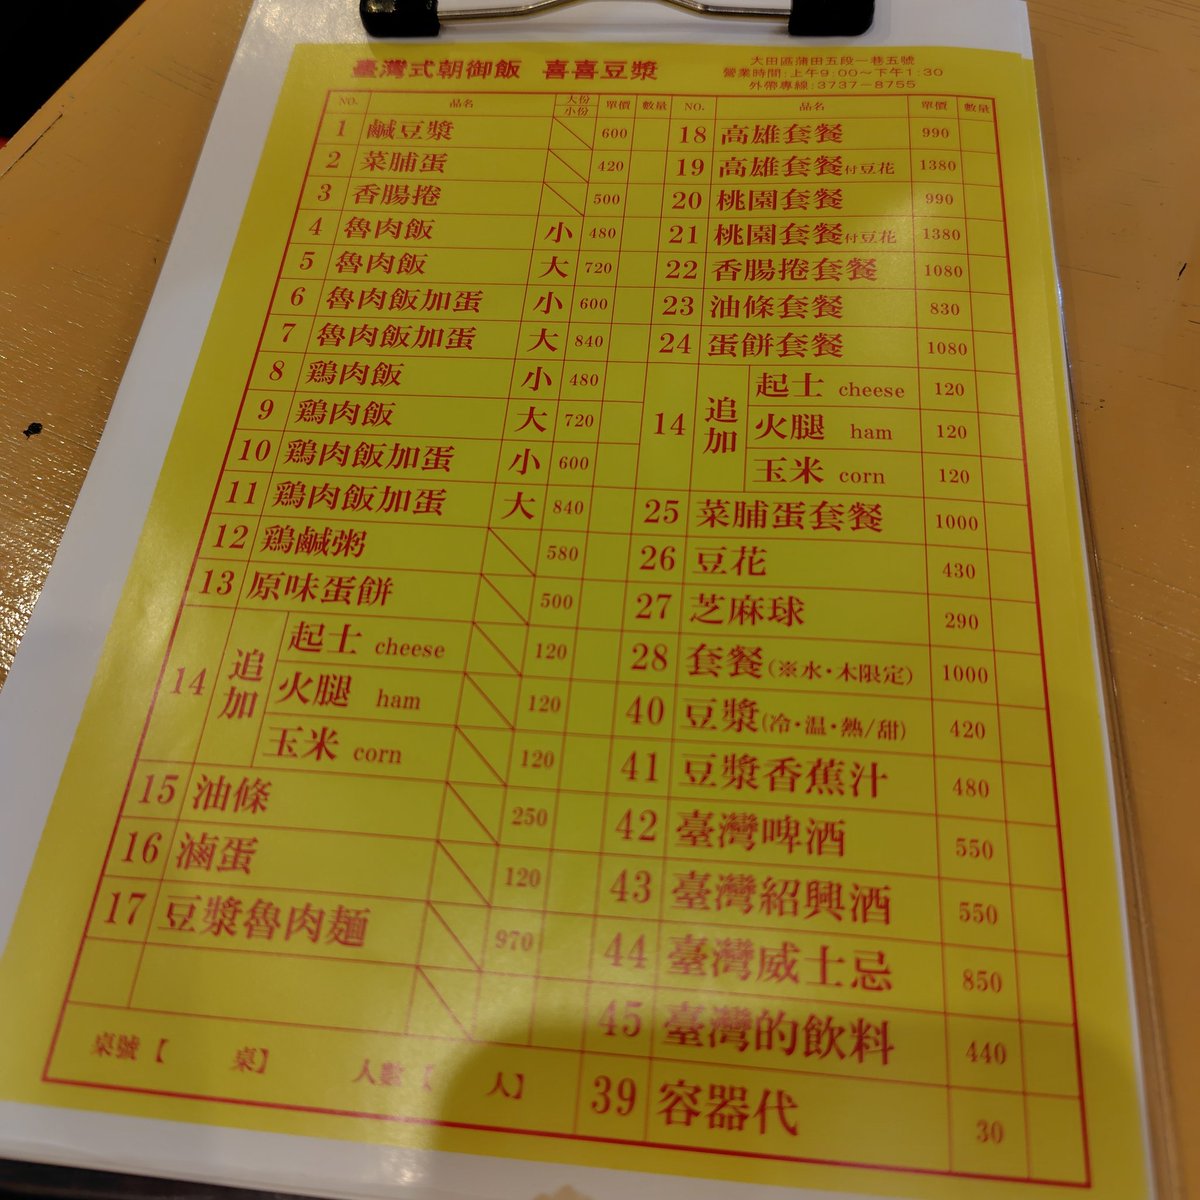 臺灣式朝御飯 喜喜豆漿
大田區蒲田五段一巷五號
營業時間:上午9:00~下午1:30
外帶專線:3737-8755
NO. 品名 大份 小份 單價 數量
1 鹹豆漿 600
2 菜脯蛋 420
3 香腸捲 500
4 魯肉飯 小 480
5 魯肉飯 大 720
6 魯肉飯加蛋 小 600
7 魯肉飯加蛋 大 840
8 鶏肉飯 小 480
9 鶏肉飯 大 720
10 鶏肉飯加蛋 小 600
11 鶏肉飯加蛋 大 840
12 鶏鹹粥 580
13 原味蛋餅 500
14 追加
起士 cheese 120
火腿 ham 120
玉米 corn 120
15 油條 250
16 滷蛋 120
17 豆漿魯肉麵 970
桌號【 桌】 人數【 人】
NO. 品名 單價 數量
18 高雄套餐 990
19 高雄套餐付豆花 1380
20 桃園套餐 990
21 桃園套餐付豆花 1380
22 香腸捲套餐 1080
23 油條套餐 830
24 蛋餅套餐 1080
14 追加
起士 cheese 120
火腿 ham 120
玉米 corn 120
25 菜脯蛋套餐 1000
26 豆花 430
27 芝麻球 290
28 套餐(※水・木限定) 1000
40 豆漿(冷・温・熱/甜) 420
41 豆漿香蕉汁 480
42 臺灣啤酒 550
43 臺灣紹興酒 550
44 臺灣威士忌 850
45 臺灣的飲料 440
39 容器代 30